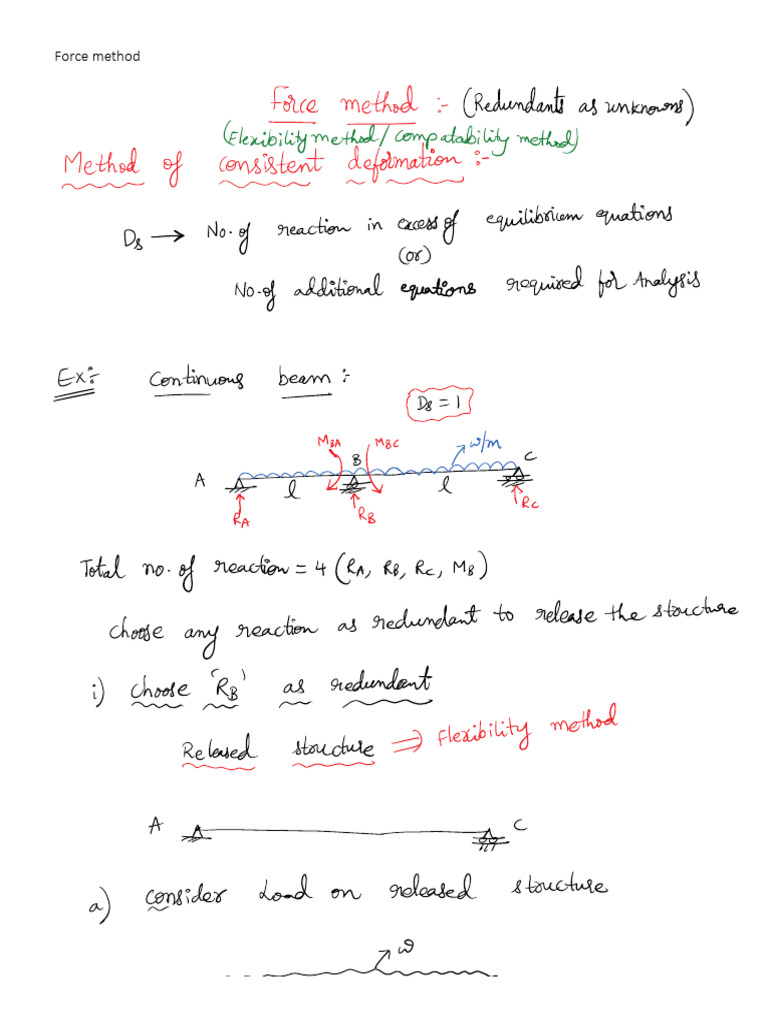 Force method
Force method :- (Redundants as unknowns)
(Flexibility method / compatability method)
Method of consistent deformation :-
Ds → No. of reaction in excess of equilibrium equations
(or)
No. of additional equations required for Analysis
Ex:- Continuous beam :-
Ds = 1
MBA B MBC w/m C
A l l
RA RB RC
Total no. of reaction = 4 (RA, RB, RC, MB)
choose any reaction as redundant to release the structure
i) choose 'RB' as redundant
Released structure ⇒ Flexibility method
A C
a) consider Load on released structure
w